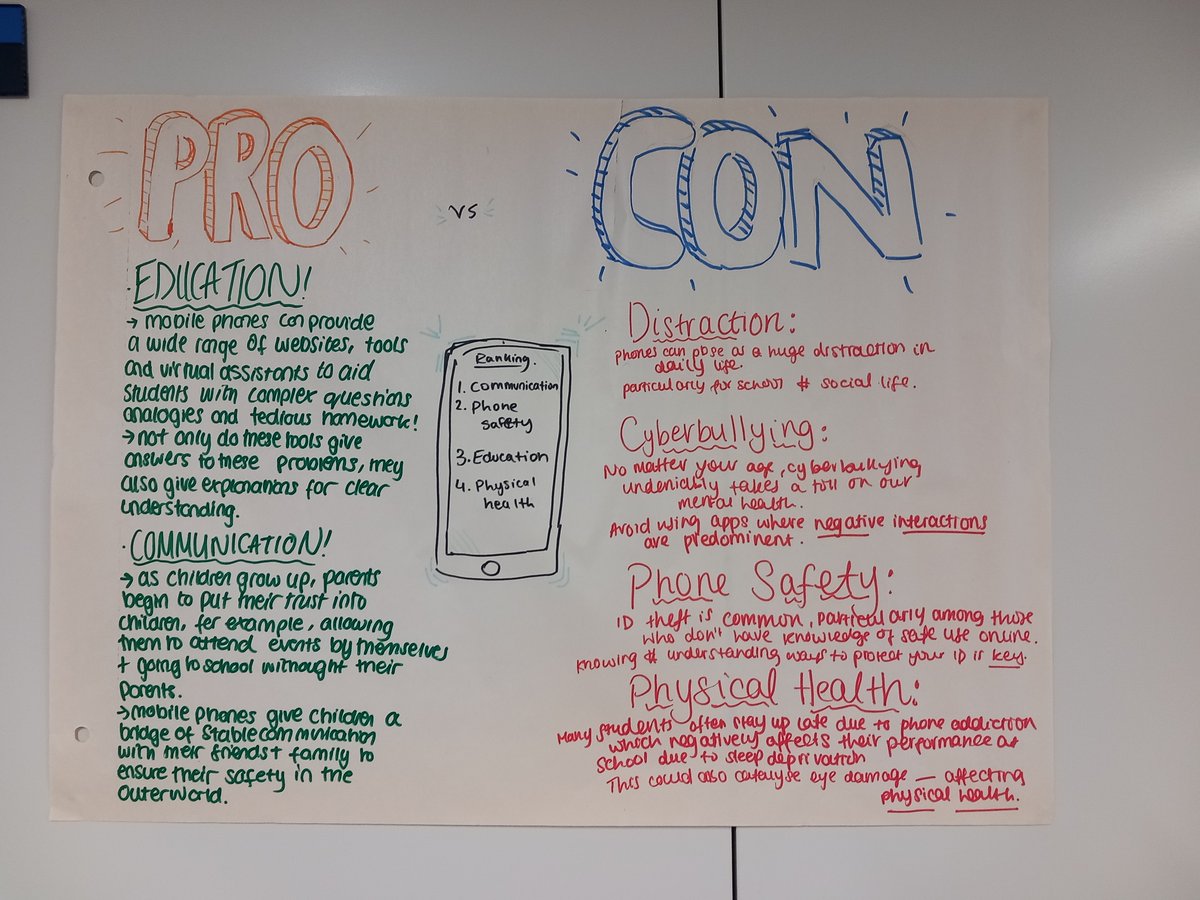 PRO
vs
CON
EDUCATION!
→ mobile phones can provide
a wide range of websites, tools
and virtual assistants to aid
students with complex questions
analogies and tedious homework!
→ not only do these tools give
answers to these problems, they
also give explanations for clear
understanding.
· COMMUNICATION!
→ as children grow up, parents
begin to put their trust into
children, for example, allowing
them to attend events by themselves
+ going to school withought their
parents.
→ mobile phones give children a
bridge of stable communication
with their friends + family to
ensure their safety in the
outerworld.
Ranking.
1. Communication
2. Phone
safety
3. Education
4. Physical
health
Distraction:
phones can pose as a huge distraction in
daily life.
particularly for school & social life.
Cyberbullying:
No matter your age, cyberbullying
undeniably takes a toll on our
mental health.
Avoid using apps where negative interactions
are predominent.
Phone Safety:
ID theft is common, particularly among those
who don't have knowledge of safe use online.
Knowing & understanding ways to protect your ID is key.
Physical Health:
Many students often stay up late due to phone addiction
which negatively affects their performance at
school due to sleep deprivation
This could also catalyse eye damage — affecting
physical health.